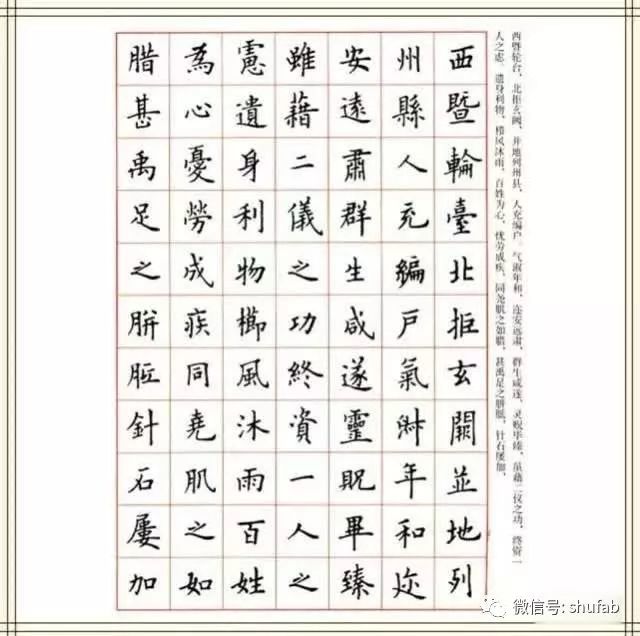 西暨轮台，北拒玄阙，并地列州县，人充编户。气淑年和，迩安远肃，群生咸遂，灵贶毕臻，虽藉二仪之功，终资一
人之虑。遗身利物，栉风沐雨，百姓为心，忧劳成疾，同尧肌之如腊，甚禹足之胼胝，针石屡加，
西暨輪臺北拒玄闕並地列
州縣人充編戶氣淑年和迩
安遠肅群生咸遂靈貺畢臻
雖藉二儀之功終資一人之
慮遺身利物櫛風沐雨百姓
為心憂勞成疾同堯肌之如
腊甚禹足之胼胝針石屢加
微信号: shufab